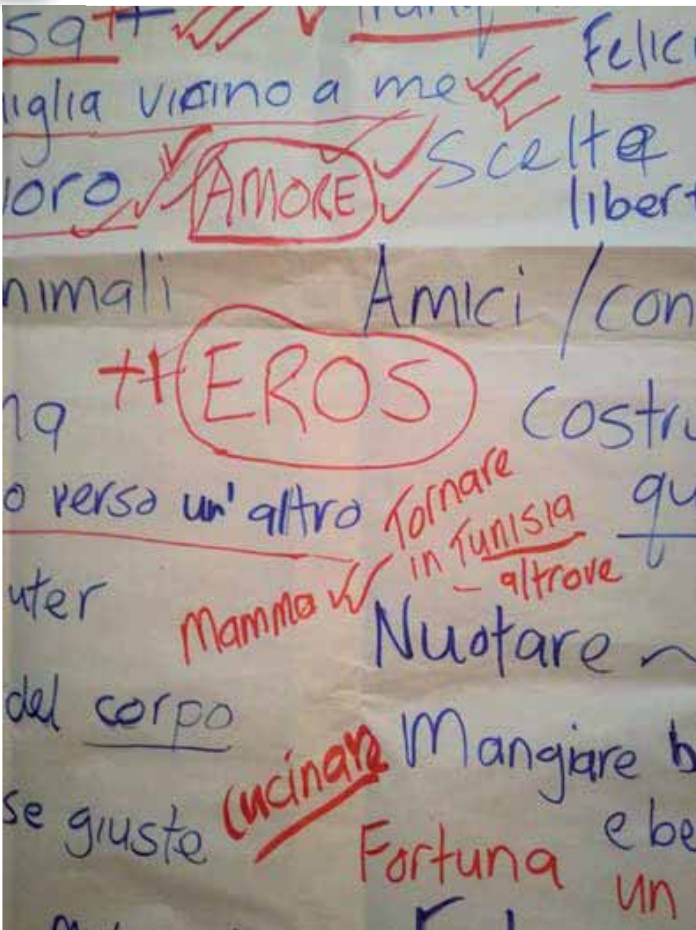 sa ++
Felici
iglia vicino a me
loro AMORE Scelta
libert
nimali Amici / con
++ EROS
na Costru
o verso un' altro Tornare qu
in Tunisia
- altrove
uter Mamma
Nuotare ~
del corpo
Cucinare Mangiare b
se giuste e be
Fortuna un